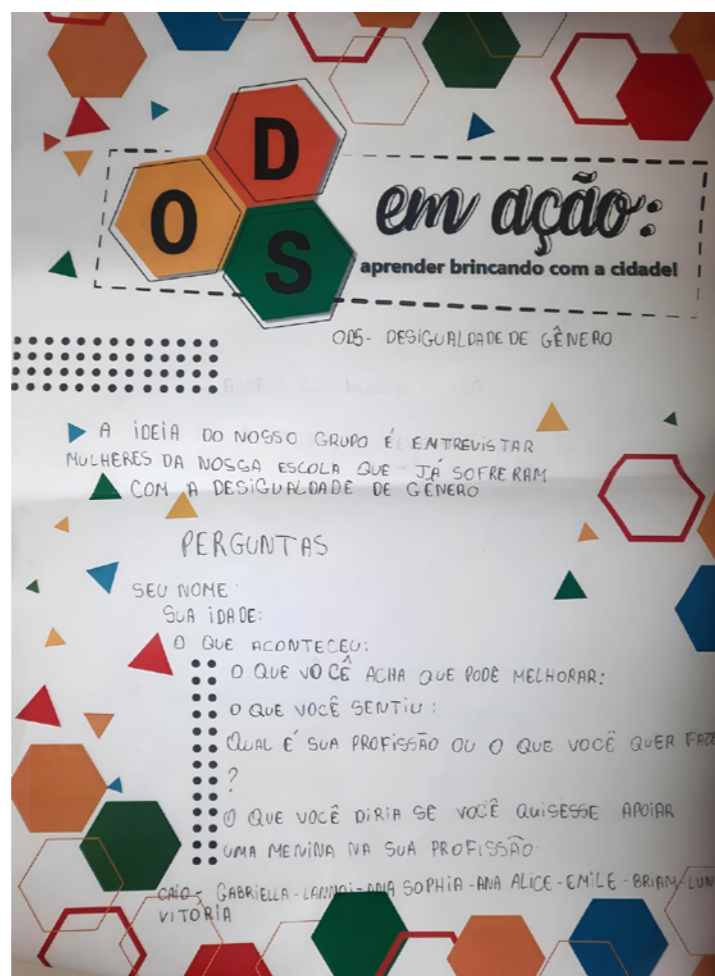 ODS
em ação:
aprender brincando com a cidade!
ODS- DESIGUALDADE DE GÊNERO
A iDEiA DO NOSSO GRUPO É ENTREVISTAR
MULHERES DA NOSSA ESCOLA QUE JÁ SOFRERAM
COM A DESIGUALDADE DE GÊNERO
PERGUNTAS
SEU NOME:
SUA iDADE:
O QUE ACONTECEU:
O QUE VOCÊ ACHA QUE PODE MELHORAR:
O QUE VOCÊ SENTiU:
QUAL É SUA PROFISSÃO OU O QUE VOCÊ QUER FAZE
?
O QUE VOCÊ DiRiA SE VOCÊ QUiSESSE APOiAR
UMA MENiNA NA SUA PROFISSÃO.
CAiO - GABRiELLA - ANA SOPHiA - ANA ALiCE - EMiLE - BRiAM - LUN
VITÓRiA